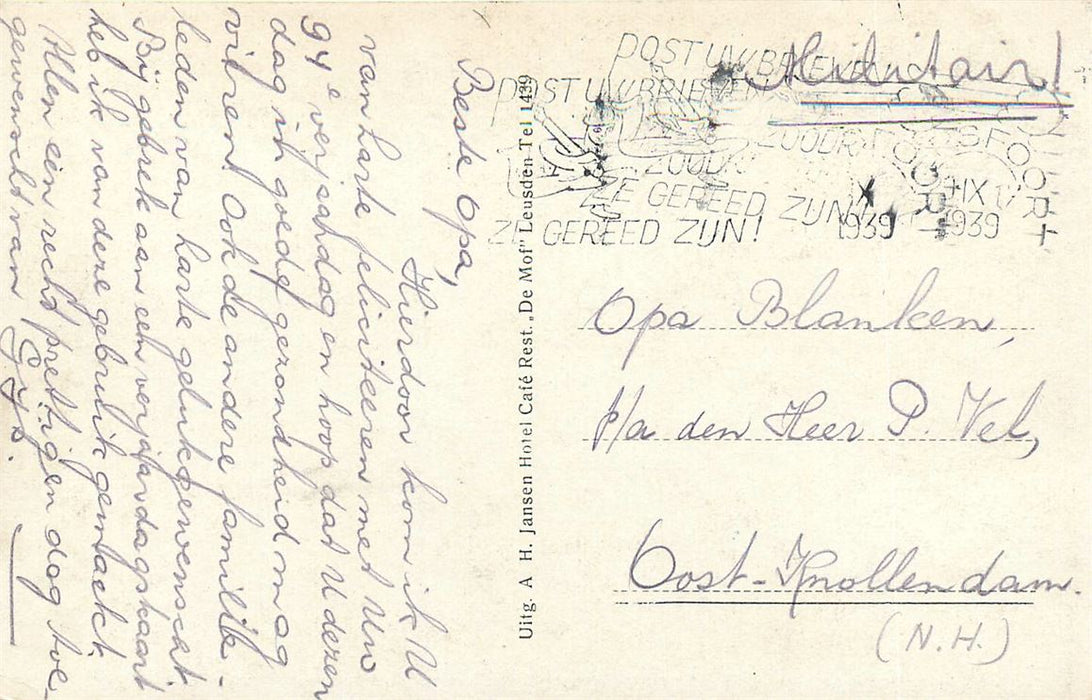 Beste Opa,
Hierdoor kom ik U
van harte feliciteeren met Uw
94e verjaardag en hoop dat U dezen
dag in goede gezondheid mag
vieren. Ook de andere familie-
leden van harte gelukgewenscht.
Bij gebrek aan een verjaardagskaart
heb ik van deze gebruik gemaakt.
Allen een recht prettigen dag toe-
gewenscht van Gijs.
Uitg. A H. Jansen Hotel Café Rest. „De Mof" Leusden Tel 1439
Militair!
POST UW BRIEVEN
POST UW BRIEVEN
ZOODRA
ZOODRA
ZE GEREED ZIJN!
ZE GEREED ZIJN!
IX
1939
IX
1939
Opa Blanken,
p/a den Heer P. Vel,
Oost-Knollendam.
(N.H.)